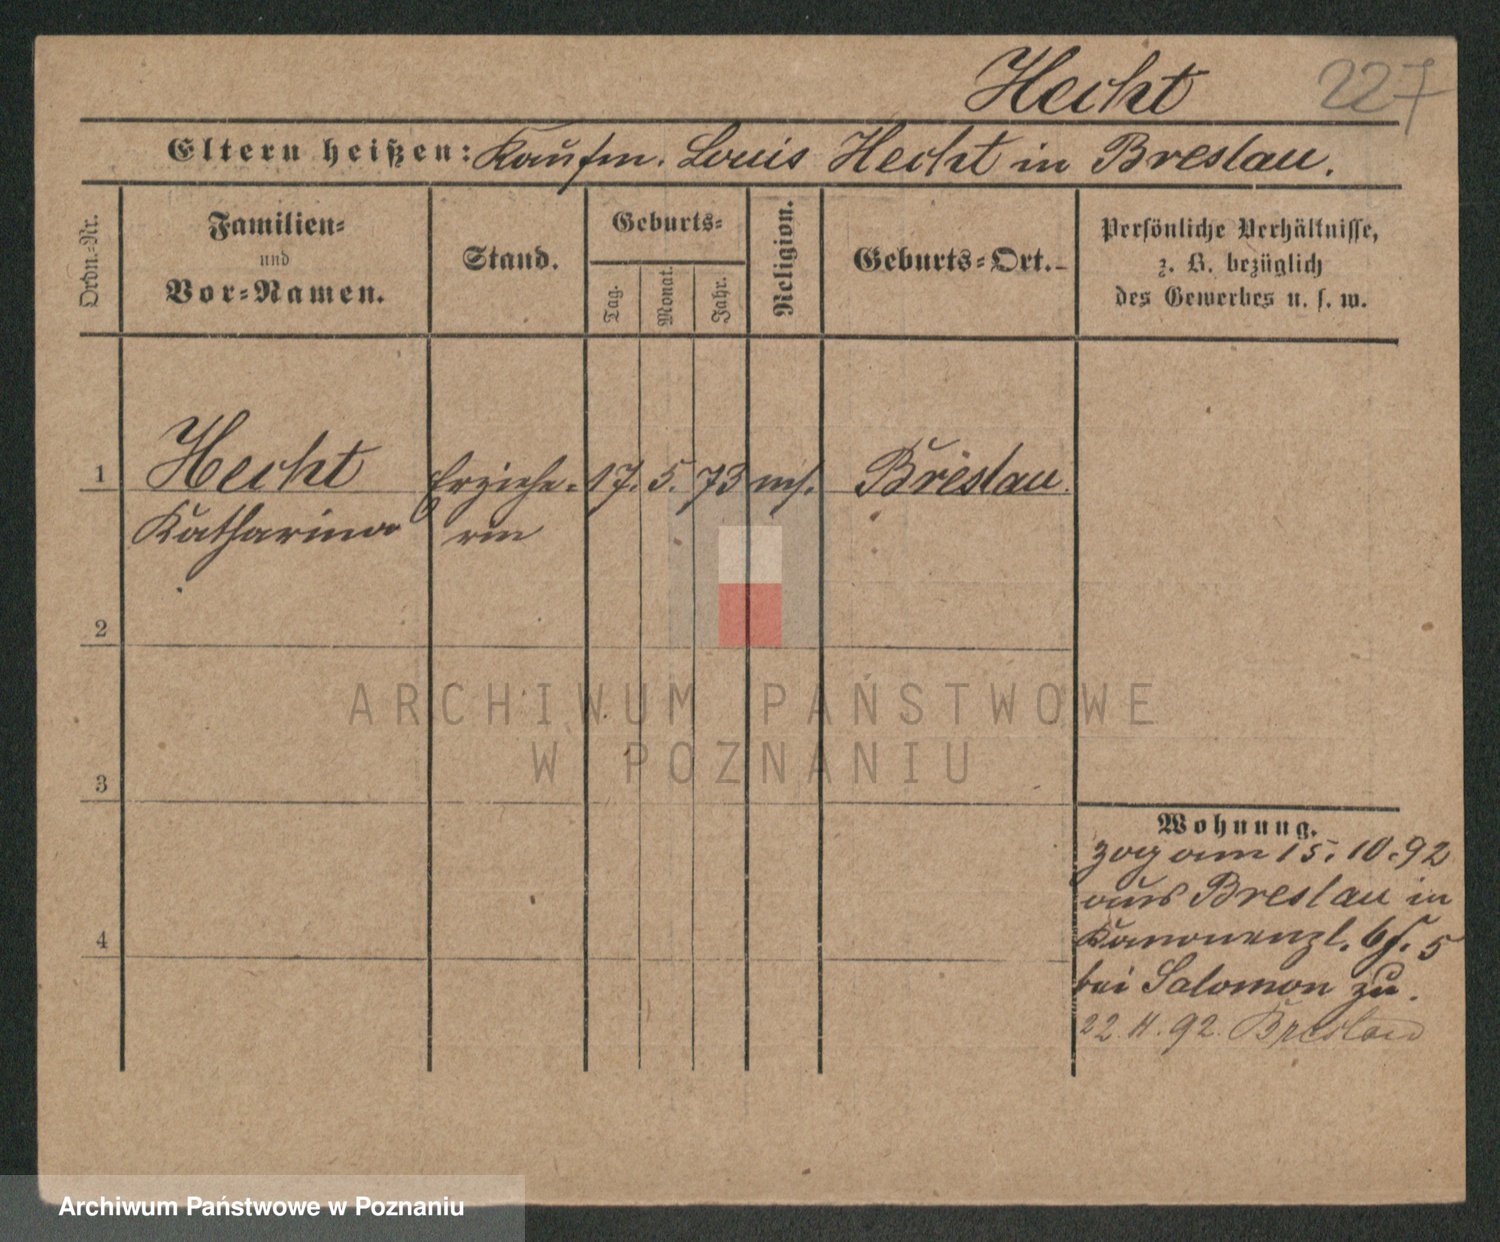 Hecht 227
Eltern heißen: Kaufm. Louis Hecht in Breslau.
Ordn.-Nr.
Familien-
und
Vor-Namen.
Stand.
Geburts-
Tag.
Monat.
Jahr.
Religion.
Geburts-Ort.
Persönliche Verhältnisse,
z. B. bezüglich
des Gewerbes u. s. w.
1 Hecht Erziehe- 17. 5. 73 mos. Breslau.
Katharina rin
2
3
4
Wohnung.
zog am 15. 10. 92
aus Breslau in
Kanonenpl. 5
bei Salomon zu.
22. 11. 92. Breslau
ARCHIWUM PAŃSTWOWE
W POZNANIU
Archiwum Państwowe w Poznaniu